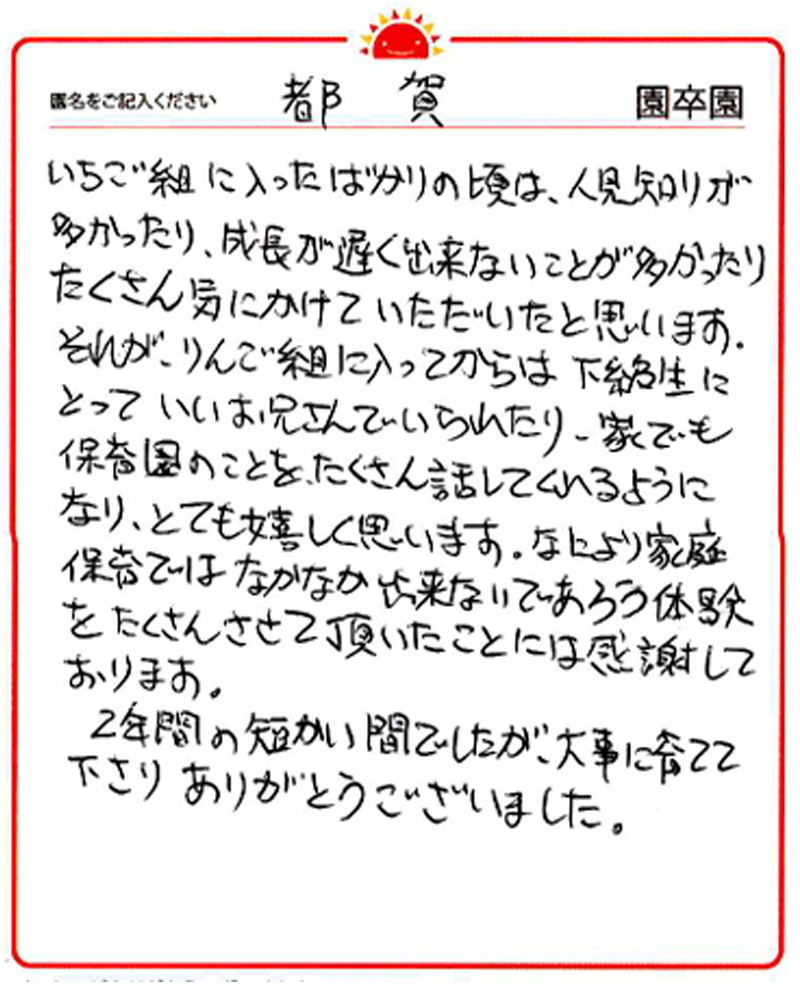 園名をご記入ください 都賀 園卒園
いちご組に入ったばかりの頃は、人見知りが
多かったり、成長が遅く出来ないことが多かったり
たくさん気にかけていただいたと思います。
それが、りんご組に入ってからは下級生に
とっていいお兄さんでいられたり、家でも
保育園のことを、たくさん話してくれるように
なり、とても嬉しく思います。なにより家庭
保育ではなかなか出来ないであろう体験
をたくさんさせて頂いたことには感謝して
おります。
2年間の短かい間でしたが、大事に育てて
下さりありがとうございました。